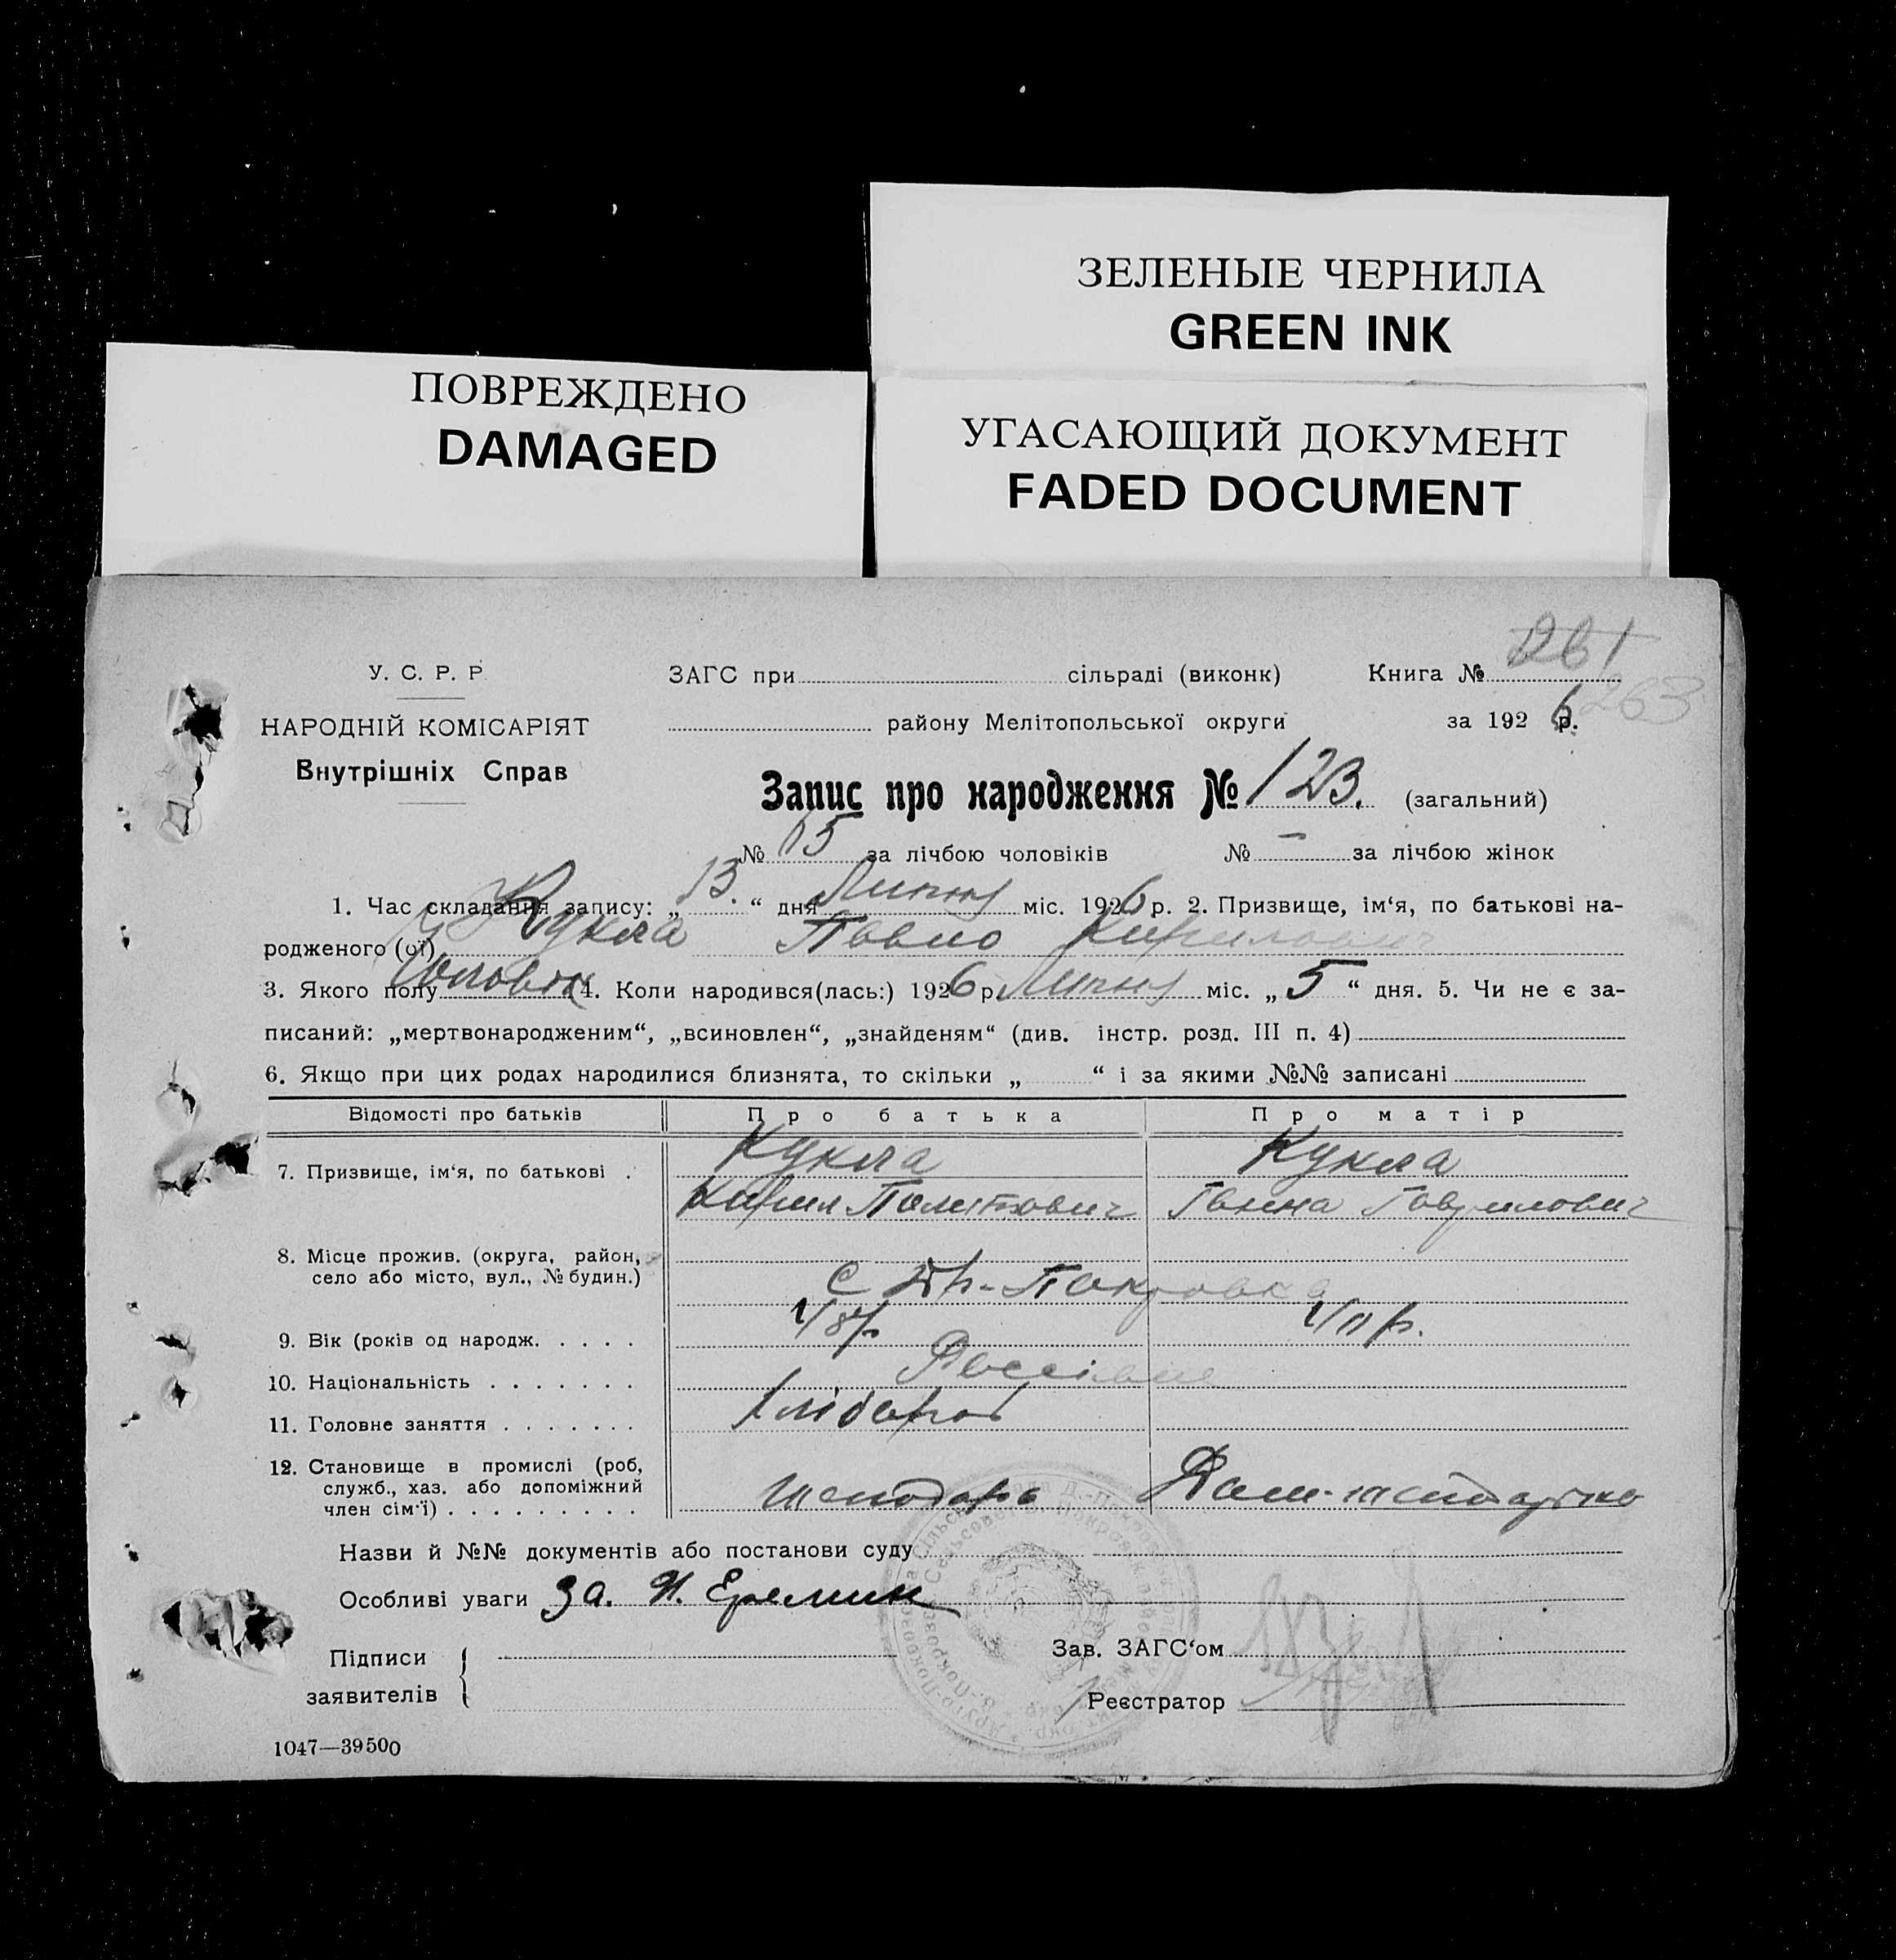 ЗЕЛЕНЫЕ ЧЕРНИЛА
GREEN INK
ПОВРЕЖДЕНО
DAMAGED
УГАСАЮЩИЙ ДОКУМЕНТ
FADED DOCUMENT
261
263
У. С. Р. Р
НАРОДНІЙ КОМІСАРІЯТ
Внутрішніх Справ
ЗАГС при сільраді (виконк) Книга №
району Мелітопольської округи за 1926 р.
Запис про народження № 123. (загальний)
№ 65 за лічбою чоловіків № – за лічбою жінок
1. Час складання запису: „13.“ дня Липня міс. 1926 р. 2. Призвище, ім‘я, по батькові на-
родженого (ої) Кукла Павло Кирилович
3. Якого полу Чоловік 4. Коли народився(лась:) 1926 р. Липня міс. „5“ дня. 5. Чи не є за-
писаний: „мертвонародженим“, „всиновлен“, „знайденям“ (див. інстр. розд. III п. 4)
6. Якщо при цих родах народилися близнята, то скільки „ “ і за якими №№ записані
Відомості про батьків Про батька Про матір
7. Призвище, ім‘я, по батькові . Кукла Кукла
Кирил Ганна Гаврилович
8. Місце прожив. (округа, район,
село або місто, вул., № будин.) с Др-Покровка
9. Вік (років од народж. . . . .
10. Національність . . . . . . .
11. Головне заняття . . . . . . . Хлібороб
12. Становище в промислі (роб,
служб., хаз. або допоміжний
член сім‘ї) . . . . . . . . .
Назви й №№ документів або постанови суду
Особливі уваги За. Н. Еремин
Підписи
заявителів
Зав. ЗАГС‘ом
Реєстратор
1047—39500